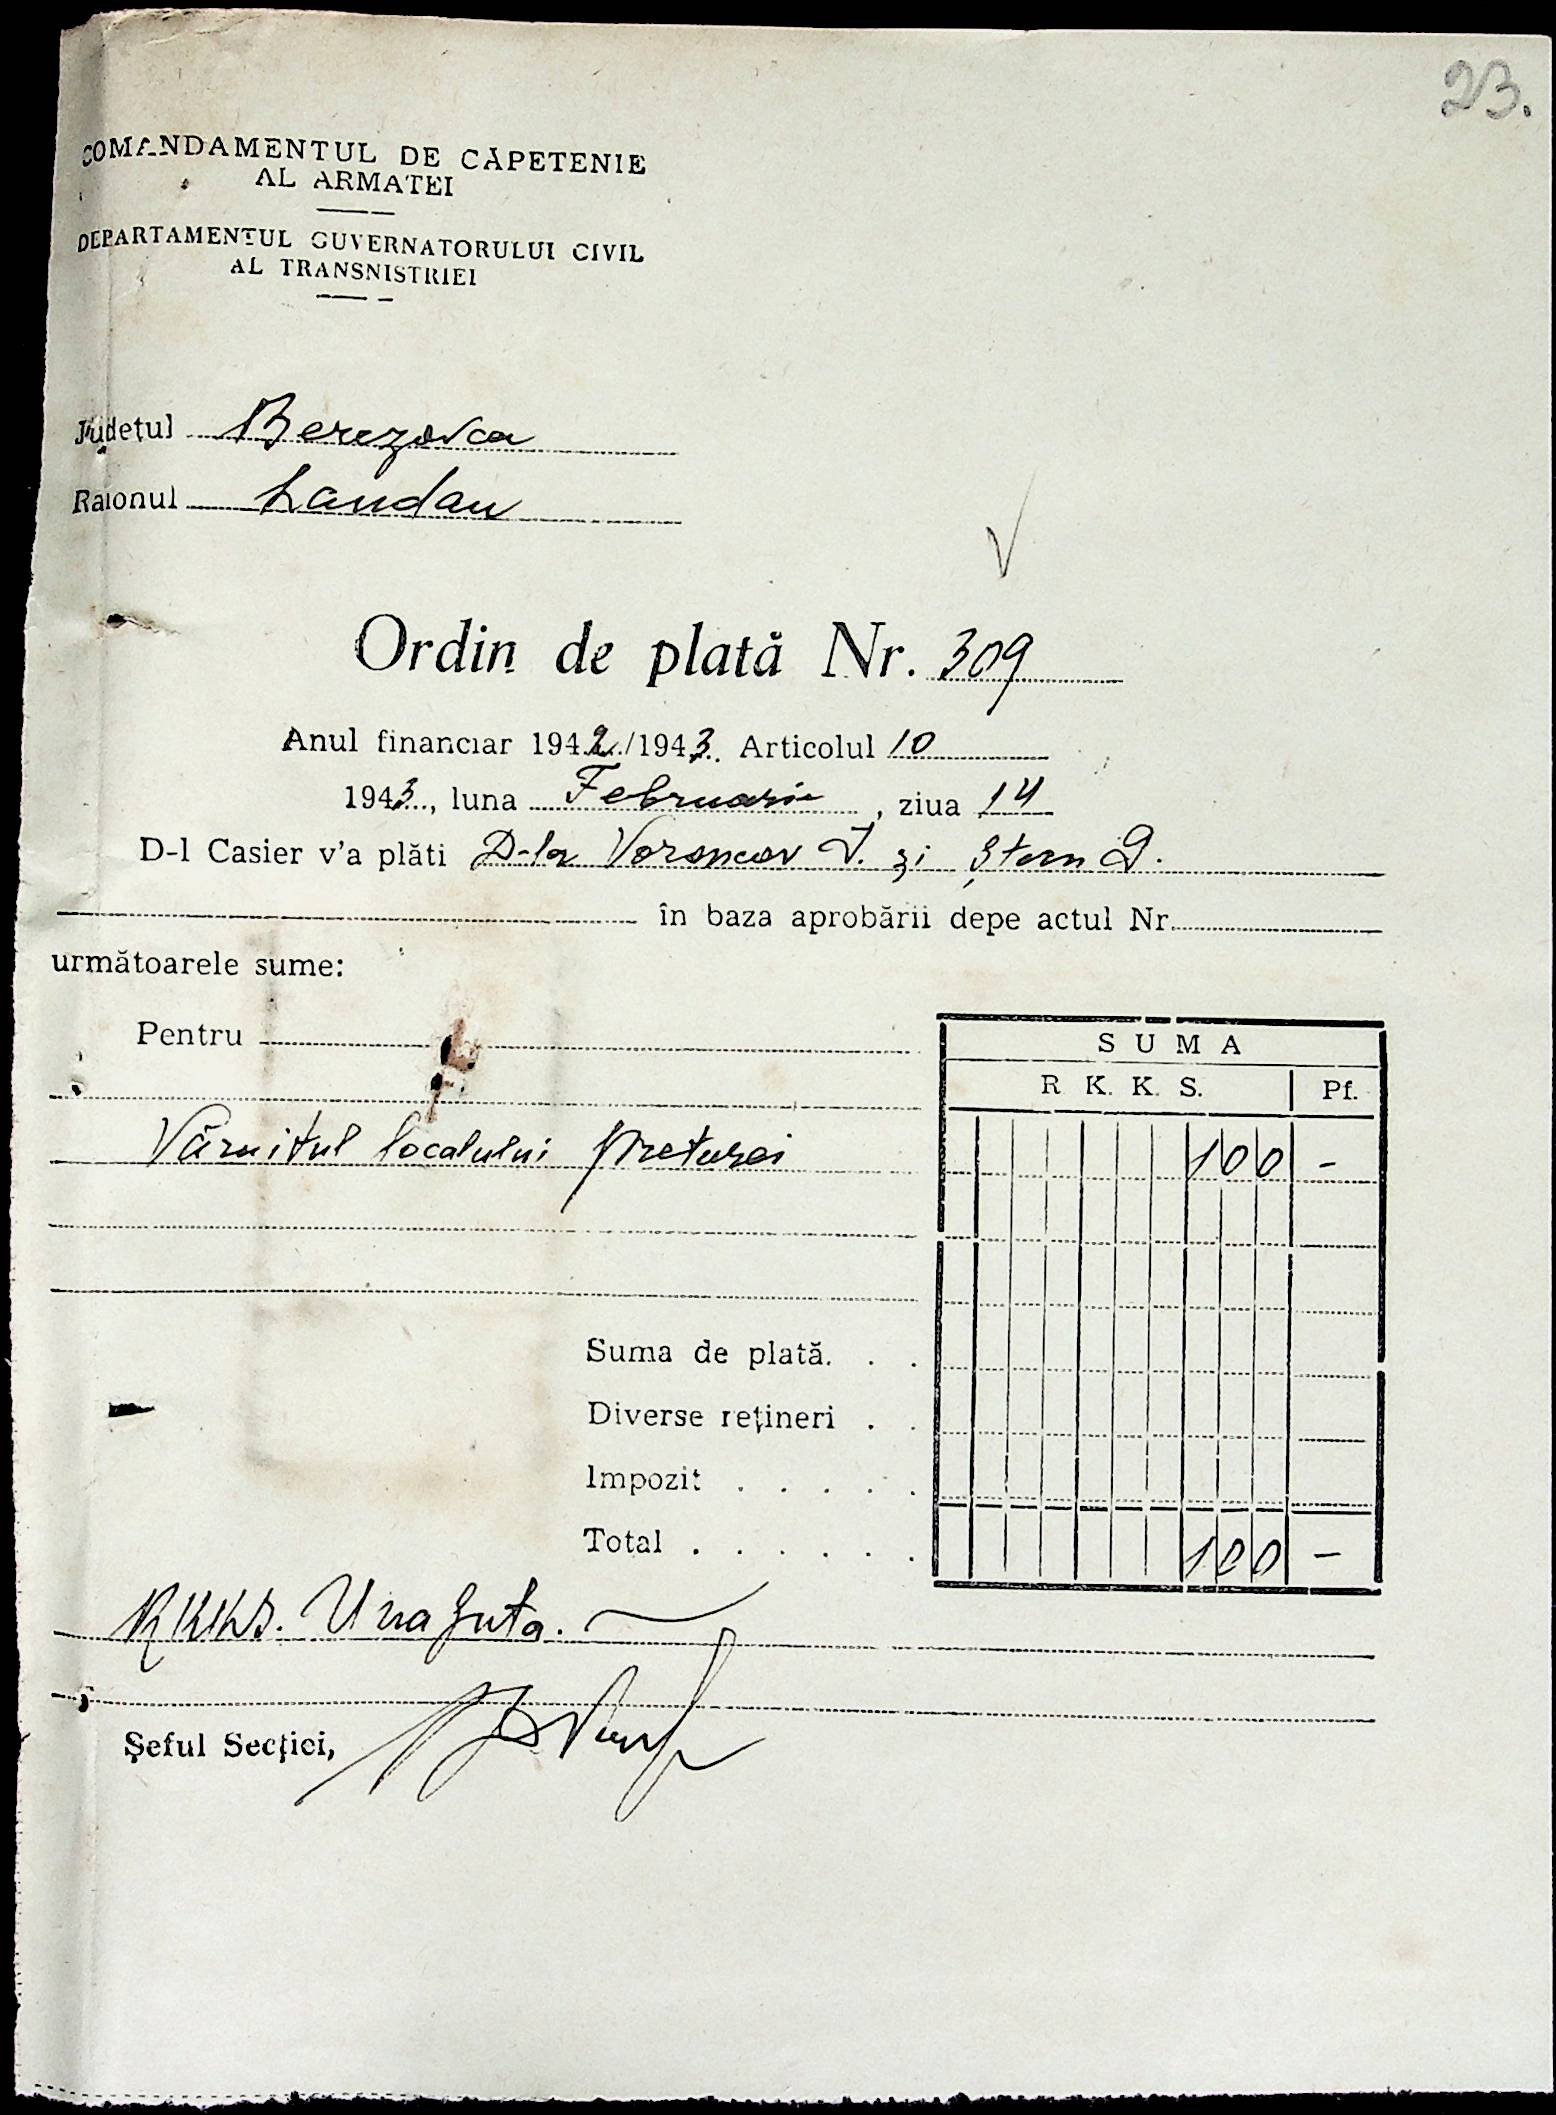 23.
COMANDAMENTUL DE CĂPETENIE
AL ARMATEI
DEPARTAMENTUL GUVERNATORULUI CIVIL
AL TRANSNISTRIEI
Județul Berezovca
Raionul Landau
Ordin de plată Nr. 309
Anul financiar 1942/1943. Articolul 10
1943, luna Februarie, ziua 14
D-l Casier v'a plăti D-lor Voroncov I. și Ștern D.
în baza aprobării depe actul Nr.
următoarele sume:
Pentru
SUMA
R K. K. S. Pf.
Văruitul localului preturei 100 -
Suma de plată. . .
Diverse rețineri . .
Impozit . . . . .
Total . . . . . . 100 -
RKKS. Una suta.
Șeful Secției,